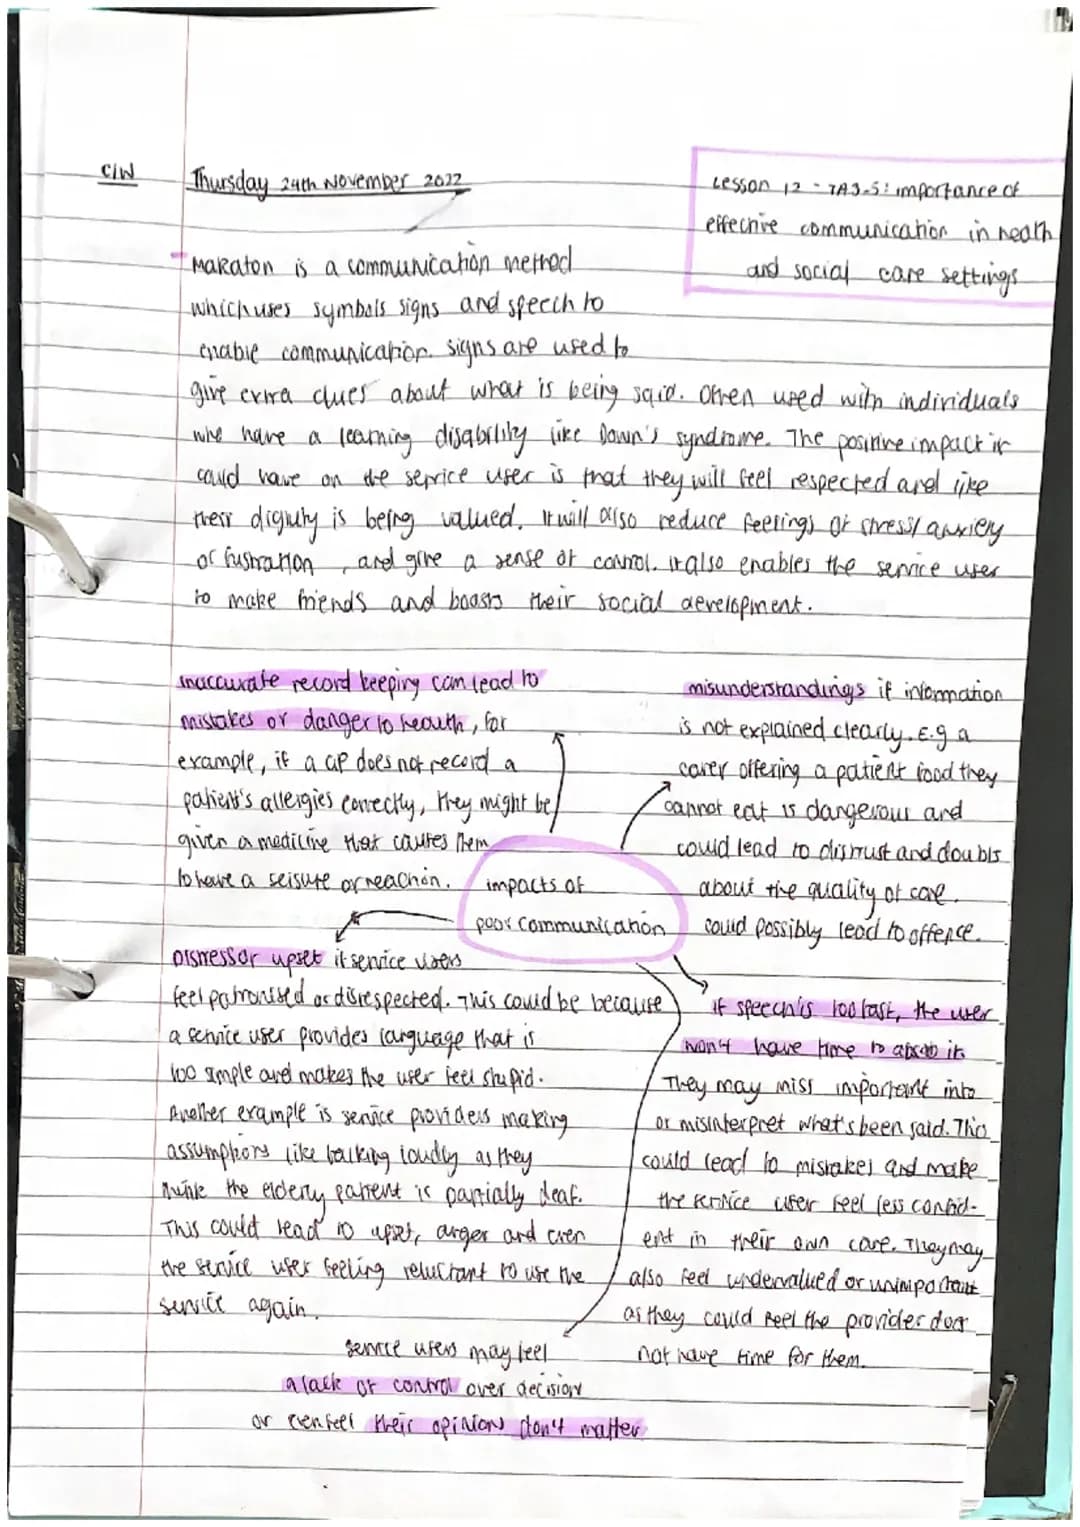 C/W
Thursday 24th November 2022
Lesson 12 - TA3-5: importance of
effective communication in health
and social care settings
Makaton is a communication method
which uses symbols signs and speech to
enable communication. signs are used to
give extra clues about what is being said. Often used with individuals
who have a learning disability like Down's syndrome. The positive impact it
could have on the service user is that they will feel respected and like
their dignity is being valued. It will also reduce feelings of stress/anxiety
or fustration, and give a sense of control. it also enables the service user
to make friends and boosts their social development.
inaccurate record keeping can lead to
mistakes or danger to health, for
example, if a GP does not record a
patient's allergies correctly, they might be
given a medicine that causes them
to have a seisure or reaction.
misunderstandings if information
is not explained clearly. E.g a
carer offering a patient food they
cannot eat is dangerous and
could lead to distrust and doubts
about the quality of care.
could possibly lead to offence.
impacts of
poor communication
Distress or upset if service users
feel patronised or disrespected. This could be because
a service user provides language that is
too simple and makes the user feel stupid.
Another example is service providers making
assumptions like talking loudly as they
think the elderly patient is partially deaf.
This could lead to upset, anger and even
the service user feeling reluctant to use the
service again.
if speech is too fast, the user
won't have time to absob it.
They may miss important info
or misinterpret what's been said. This
could lead to mistakes and make
the service user feel less confid-
ent in their own care. They may
also feel undervalued or unimportant
as they could feel the provider does
not have time for them.
service users may feel
a lack of control over decision
or even feel their opinions don't matter